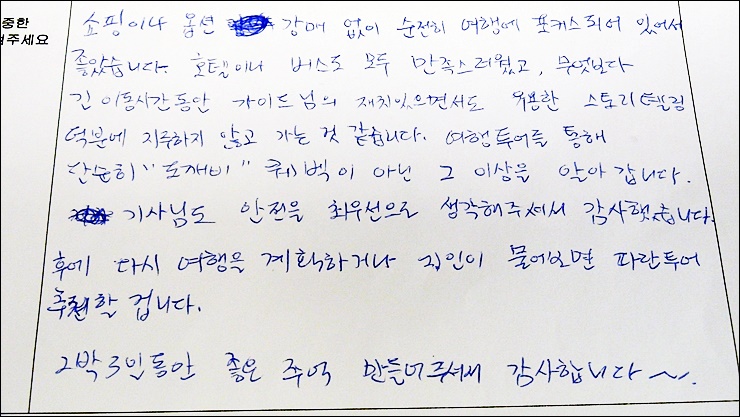 중한
주세요
쇼핑이나 옵션 강매 없이 순전히 여행에 포커스되어 있어서
좋았습니다. 호텔이나 버스도 모두 만족스러웠고, 무엇보다
긴 이동시간동안 가이드님의 재치있으면서도 유용한 스토리텔링
덕분에 지루하지 않고 가는 것 같습니다. 여행 투어를 통해
단순히 "도깨비" 퀘벡이 아닌 그 이상을 알아 갑니다.
기사님도 안전을 최우선으로 생각해주셔서 감사했습니다.
후에 다시 여행을 계획하거나 지인이 물어보면 파란투어
추천할 겁니다.
2박 3일동안 좋은 추억 만들어주셔서 감사합니다~.